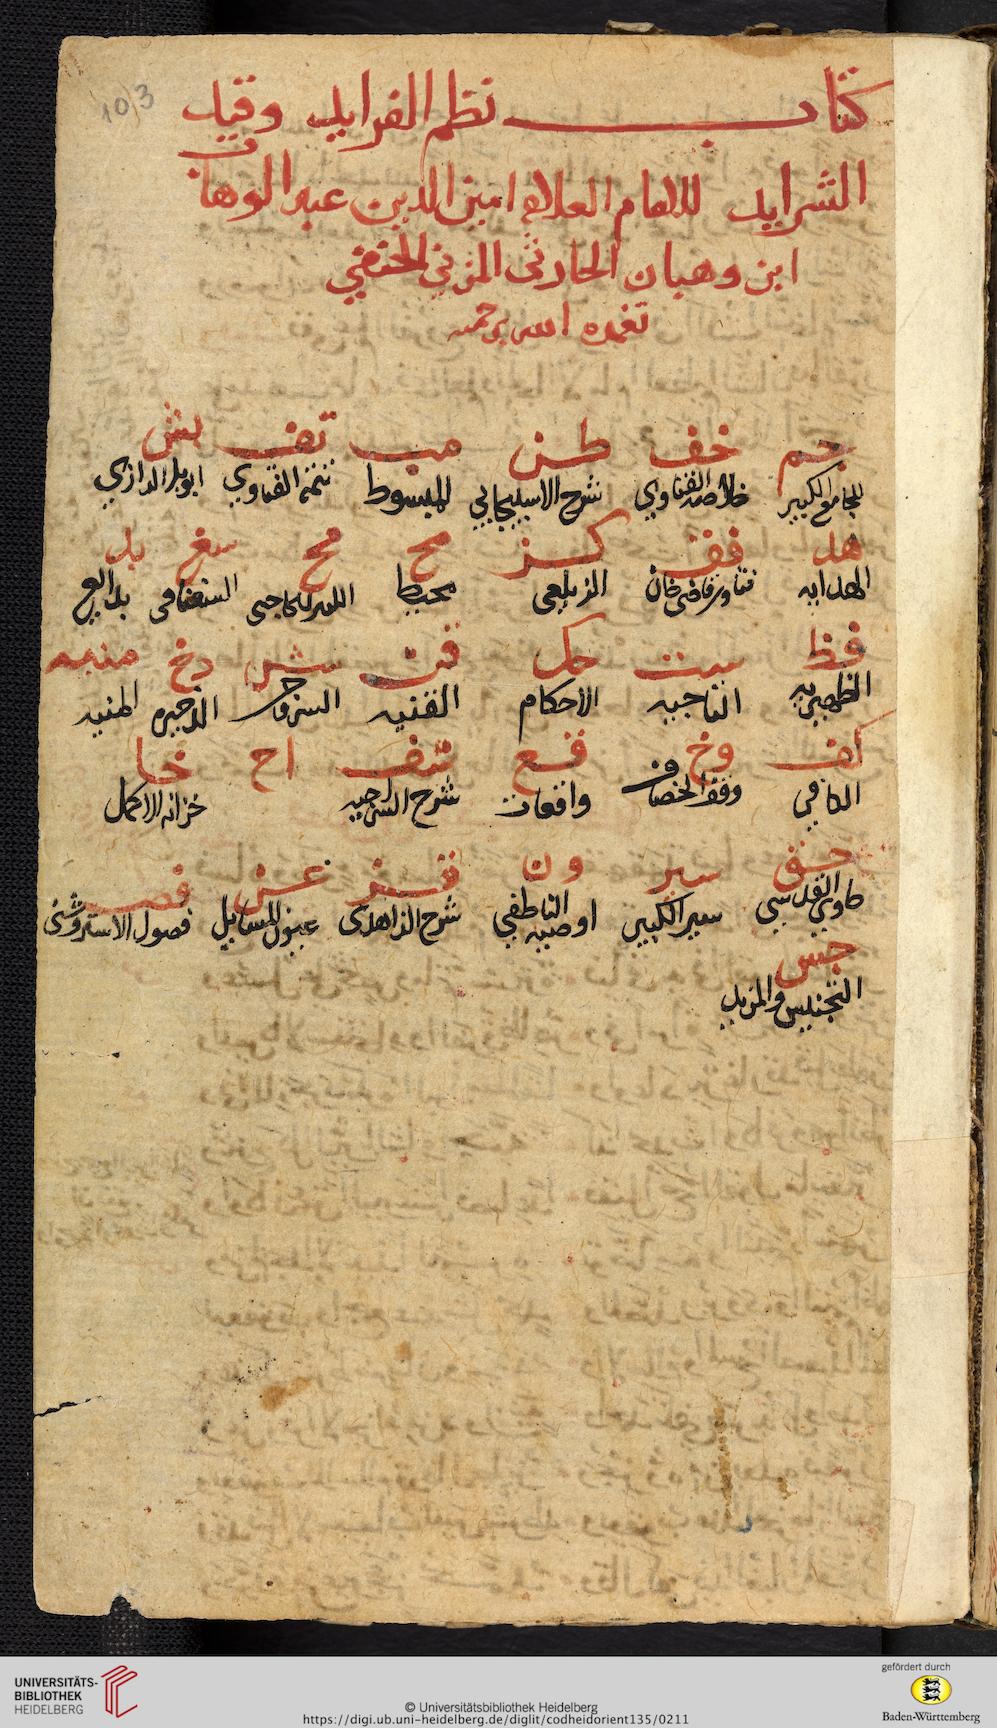 103
كتاب نظم الفرايد وقيد
الشرايد للامام العلامه امين الدين عبد الوهاب
ابن وهبان الحارثى المزني الحنفي
تغمده الله برحمته
جم خف طن مب تف بش
الجامع الكبير خلاصه الفتاوي شرح الاسبيجابي المبسوط تتمة الفتاوي ابو بكر الرازي
هد فف كز مح مح سغ بد
الهدايه فتاوي قاضي خان الزيلعي محيط السغناقي بدايع
فظ ست حك قن شر دخ منيه
الظهيريه التاجيه الاحكام القنيه السروجي الذخيره المنيه
كف وخ قع شف اح خا
الكافي وقف الخصاف واقعات شرح السراجيه خزانه الاكمل
حق سير ون ففز عن فص
حاوي القدسي سير الكبير الناطفي شرح الزاهدى عيون المسايل فصول الاستروشنى
جنس
التجنيس والمزيد
UNIVERSITÄTS-
BIBLIOTHEK
HEIDELBERG
© Universitätsbibliothek Heidelberg
https://digi.ub.uni-heidelberg.de/diglit/codheidorient135/0211
gefördert durch
Baden-Württemberg